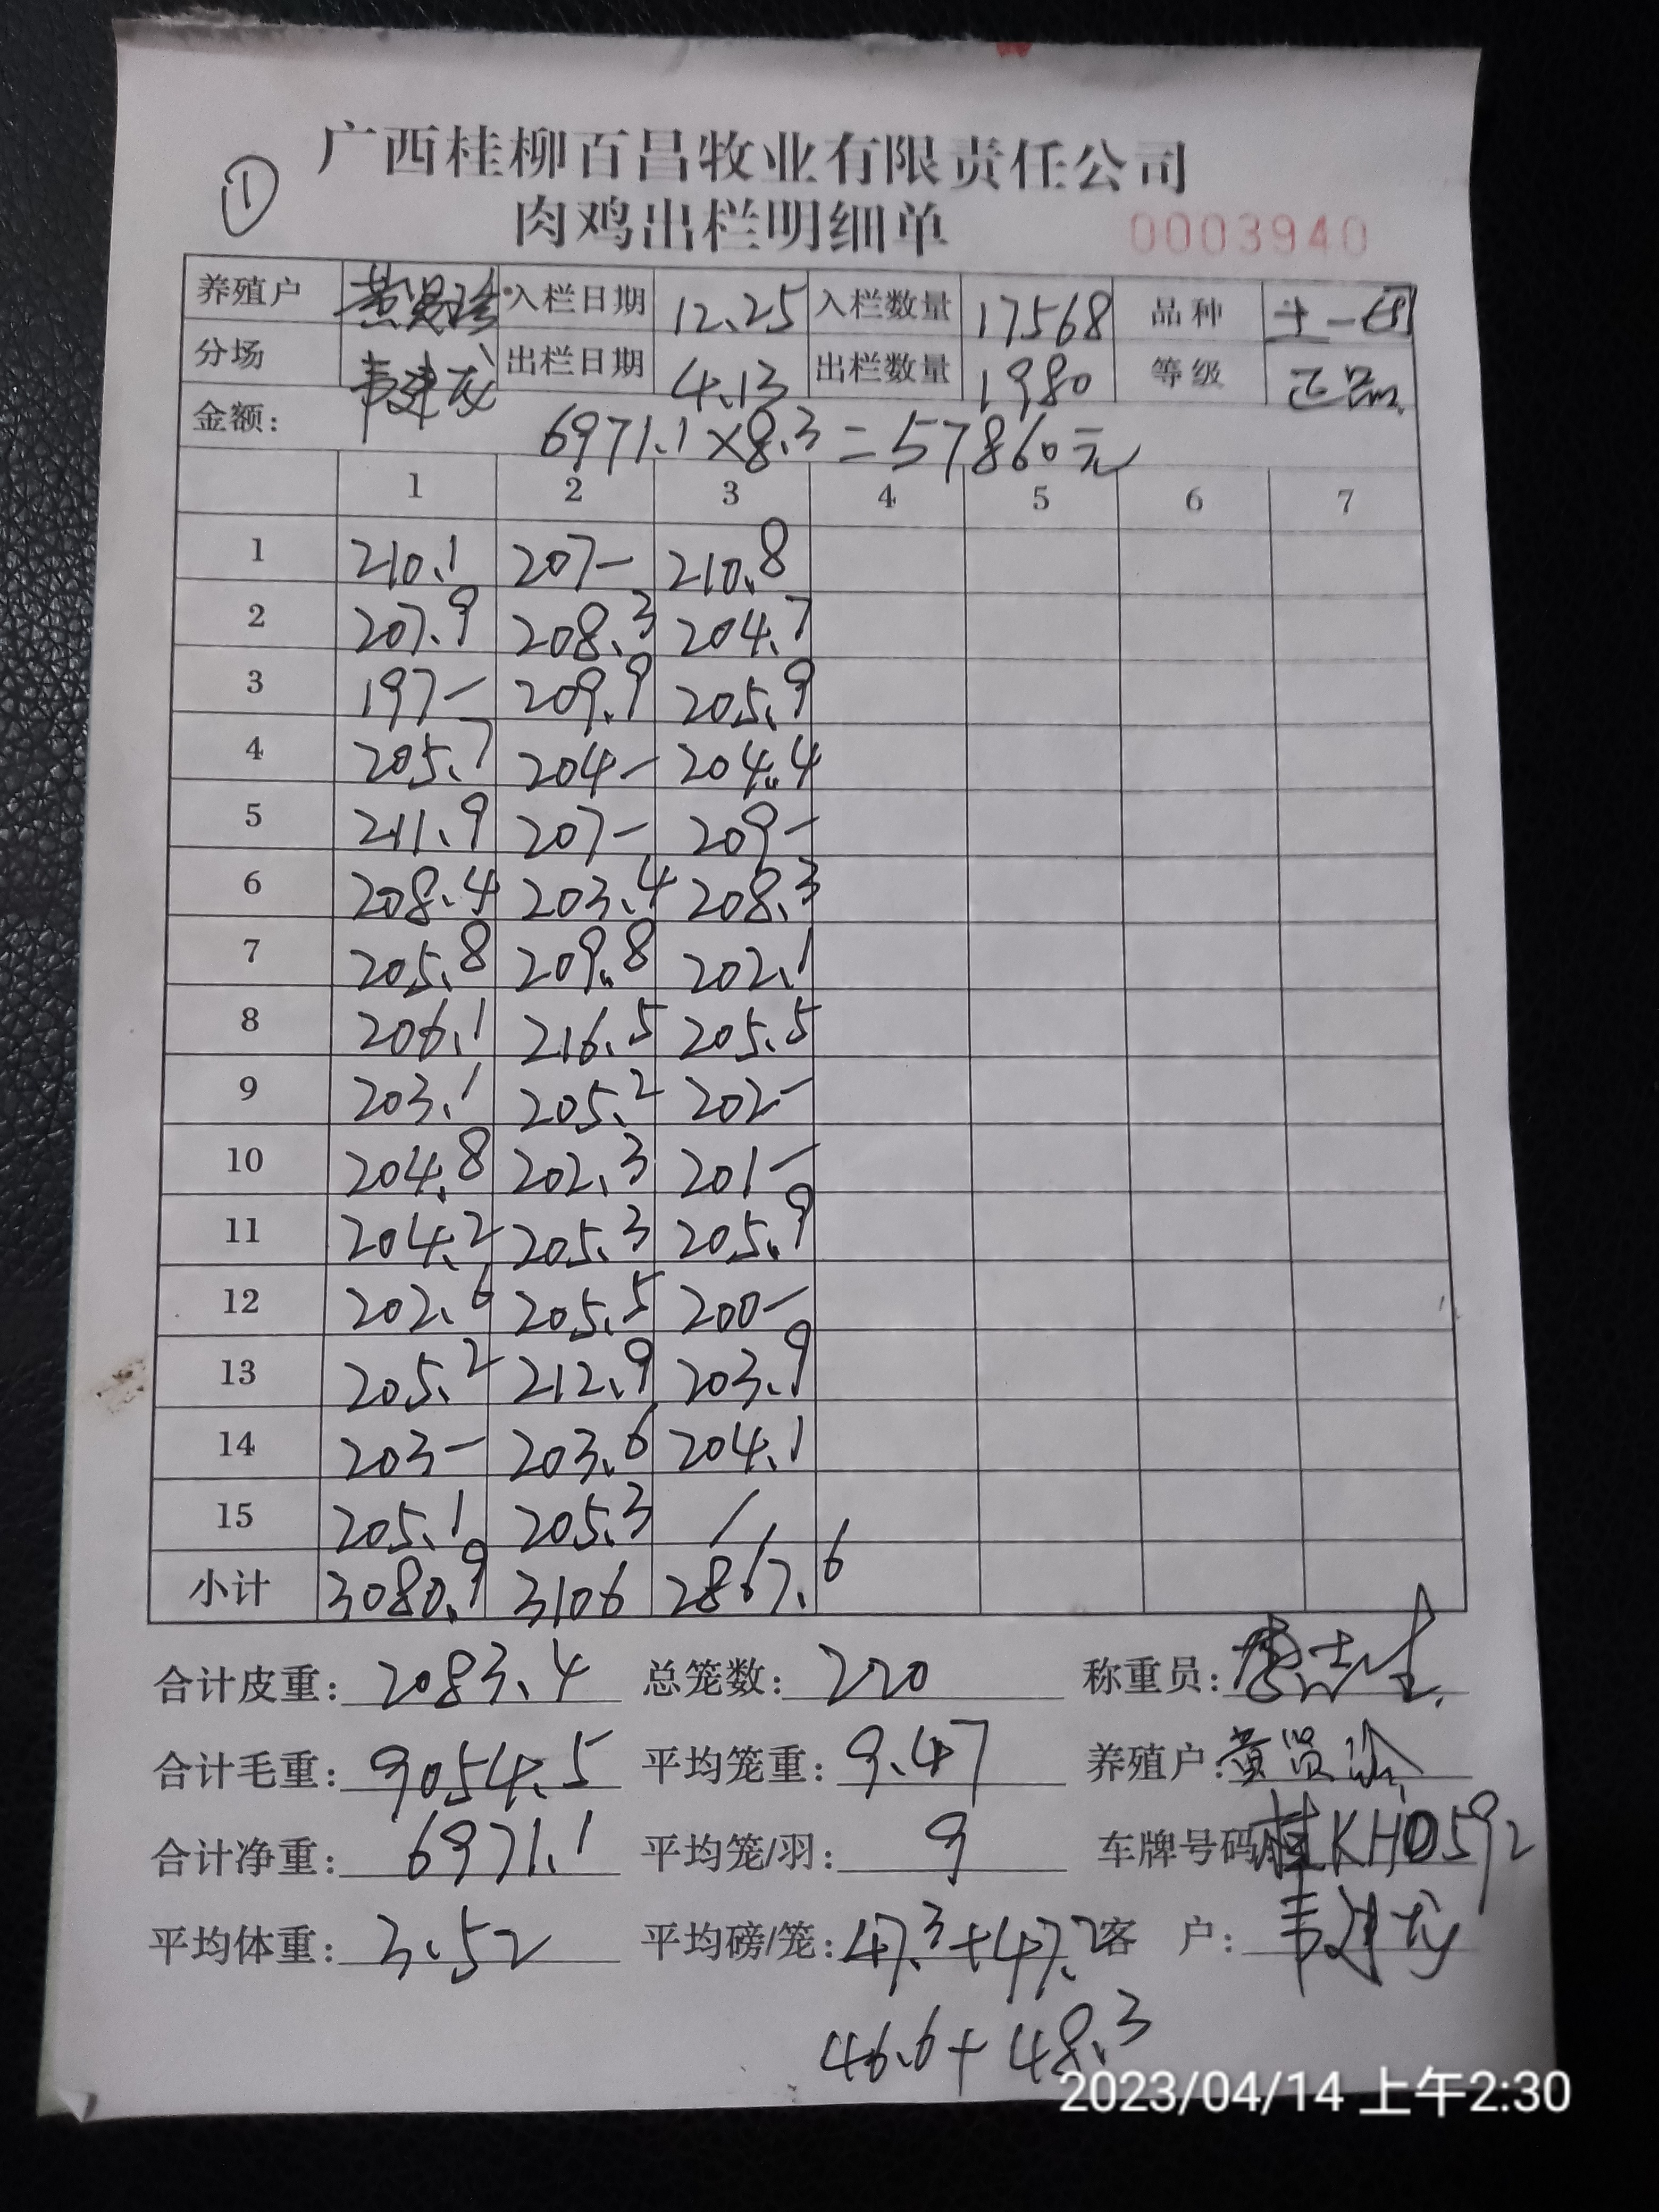 ①
广西桂柳百昌牧业有限责任公司
肉鸡出栏明细单 0003940
养殖户 黄贤珍 入栏日期 12.25 入栏数量 17568 品种 土一
分场 韦建龙 出栏日期 4.13 出栏数量 1980 等级 正品
金额: 6971.1×8.3=57860元
1 2 3 4 5 6 7
1 210.1 207- 210.8
2 207.9 208.3 204.7
3 197- 209.9 205.9
4 205.7 204- 204.4
5 211.9 207- 209-
6 208.4 203.4 208.3
7 205.8 209.8 202.1
8 206.1 216.5 205.5
9 203.1 205.2 202-
10 204.8 202.3 201-
11 204.2 205.3 205.9
12 202.6 205.5 200-
13 205.2 212.9 203.9
14 203- 203.6 204.1
15 205.1 205.3 /
小计 3080.9 3106 2867.6
合计皮重: 2083.4 总笼数: 220 称重员:
合计毛重: 9054.5 平均笼重: 9.47 养殖户: 黄贤珍
合计净重: 6971.1 平均笼/羽: 9 车牌号码 桂KH0592
平均体重: 3.52 平均磅/笼: 47.3+47.2 客 户: 韦建龙
46.6+48.3
2023/04/14 上午2:30